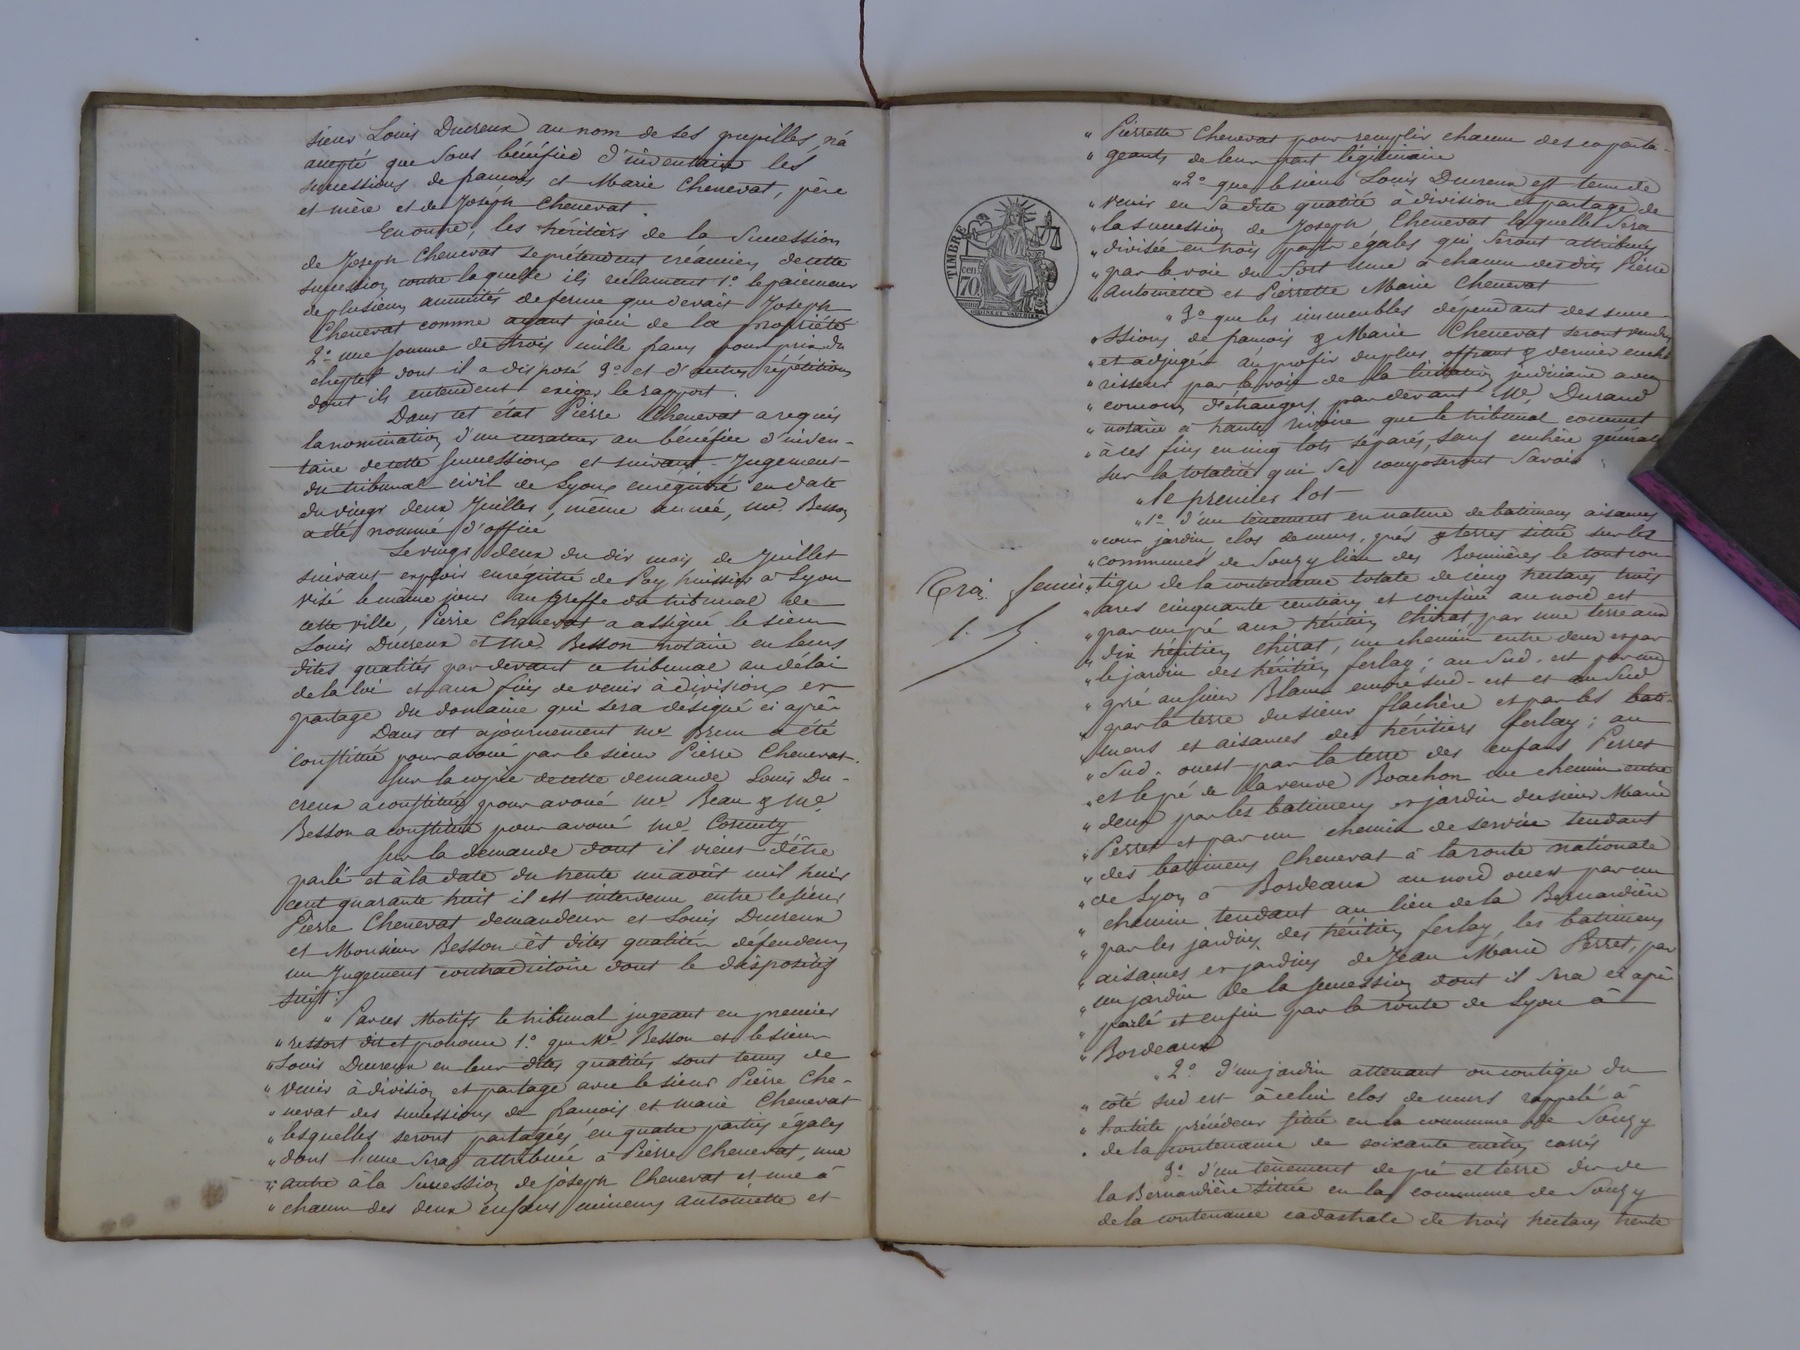 sieur Louis Ducreux au nom de ses pupilles, n'a
accepté que sous bénéfice d'inventaire les
successions de francois et Marie Chenevat, père
et mère et de Joséph Chenevat.
En outre, les héritiers de la Succession
de Joseph Chenevat se prétendent créanciers de cette
succession contre laquelle ils réclament 1º le paiement
de plusieurs annuités de ferme que devait Joseph
Chenevat comme ayant joui de la propriété
2º une somme de trois mille francs pour prix du
cheptel dont il a disposé 3º et d'autres répétitions
dont ils entendent exiger le rapport.
Dans cet état Pierre Chenevat a requis
la nomination d'un curateur au bénéfice d'inven-
taire de cette succession et suivant Jugement
du tribunal civil de Lyon enregistré en date
du vingt deux Juillet, même année, Me Besson
a été nommé d'office
Le vingt deux du dit mois de Juillet
suivant exploit enrégistré de Pay huissier à Lyon
visé le même jour au Greffe du tribunal de
cette ville, Pierre Chenevat a assigné le sieur
Louis Ducreux et Me Besson notaire en leurs
dites qualités par devant ce tribunal au délai
de la loi et aux fins de venir à division et
partage du domaine qui sera désigné ci après
Dans cet ajournement Me Brun a été
constitué pour avoué par le sieur Pierre Chenevat.
Sur la copie de cette demande Louis Du-
creux a constitué pour avoué Me Beau & Me
Besson a constitué pour avoué Me
Sur la demande dont il vient d'être
parlé et à la date du trente un août mil huit
cent quarante huit il est intervenu entre le sieur
Pierre Chenevat demandeur et Louis Ducreux
et Monsieur Besson ès dites qualités défendeurs
un Jugement contradictoire dont le dispositif
suit:
" Par ces Motifs le tribunal jugeant en premier
" ressort dit et prononce 1º que Me Besson et le sieur
" Louis Ducreux en leur dites qualités sont tenus de
" venir à division et partage avec le sieur Pierre Che-
" nevat des successions de francois et marie Chenevat
" lesquelles seront partagées en quatre parties égales
" dont l'une sera attribuée à Pierre Chenevat, une
" autre à la Succession de joséph Chenevat et une à
" chacun des deux enfans mineurs Antoinette et
" Pierrette Chenevat pour remplir chacun des coparta-
" geants de leur part légitimaire
" 2º que le sieur Louis Ducreux est tenu de
" venir en sa dite qualité à division et partage de
" la succession de Joseph Chenevat laquelle sera
" divisée en trois parts égales qui seront attribuées
" par la voie du sort une à chacun des dits Pierre
" Antoinette et Pierrette Marie Chenevat
" 3º que les immeubles dépendant des succe-
" ssions de francois & Marie Chenevat seront vendus
" et adjugés au profit du plus offrant & dernier enché
" risseur par la voie de la licitation judiciaire avec
" concours d'étrangers par devant Me Durand
" notaire à haute rivoire que le tribunal commet
" à ces fins en cinq lots séparés, sauf enchère générale
sur la totalité qui se composeront Savoir:
" le premier lot
" 1º d'un tènement en nature de batimens aisances
" cour jardin clos de murs, prés & terres situé sur les
" communes de Souzy lieu des le tout con
" tigu de la contenance totale de cinq hectares trois
" ares cinquante centiares et confiné au nord est
" par un pré aux héritiers Chirat, par une terre aux
" dix héritiers Chirat, un chemin entre deux et par
" le jardin des héritiers ferlay; au Sud-est par un
" pré au sieur Blanc encore sud-est et au Sud
" par la terre du sieur flachère et par les bati-
" mens et aisances des héritiers ferlay; au
" Sud-ouest par la terre des enfans Perret
" et le pré de la veuve Bouchon un chemin entre
" deux par les batimens et jardin du sieur Marie
" Perret et par un chemin de service tendant
" des batimens Chenevat à la route nationale
" de Lyon à Bordeaux au nord ouest par un
" chemin tendant au lieu de la Bernardière
" par les jardins des héritiers ferlay, les batimens
" aisances et jardins de Jean Marie Perret, par
" un jardin de la succession dont il sera ci après
" parlé et enfin par la route de Lyon à
" Bordeaux
" 2º d'un jardin attenant ou contigu du
" côté sud est à celui clos de murs rappelé à
" l'article précédent situé en la commune de Souzy
" de la contenance de soixante mètres carrés
3º d'un tènement de pré et terre dit de
la Bernardière situé en la commune de Souzy
de la contenance cadastrale de trois hectares trente
TIMBRE
cen
70